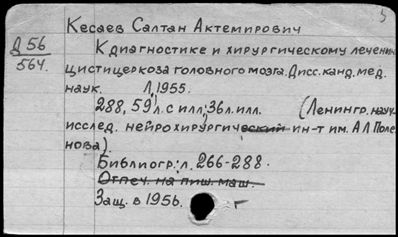 5
Кесаев Салтан Актемирович
Д 56
564.
К диагностике и хирургическому лечению
цистицеркоза головного мозга. Дисс. канд. мед.
наук. Л, 1955.
288, 59 л. с илл; 36 л. илл. (Ленингр. науч-
исслед. нейрохирургический ин-т им. АЛ Поле
нова).
Библиогр: л. 266-288.
Отпеч. на пиш. маш.
Защ. в 1956. г